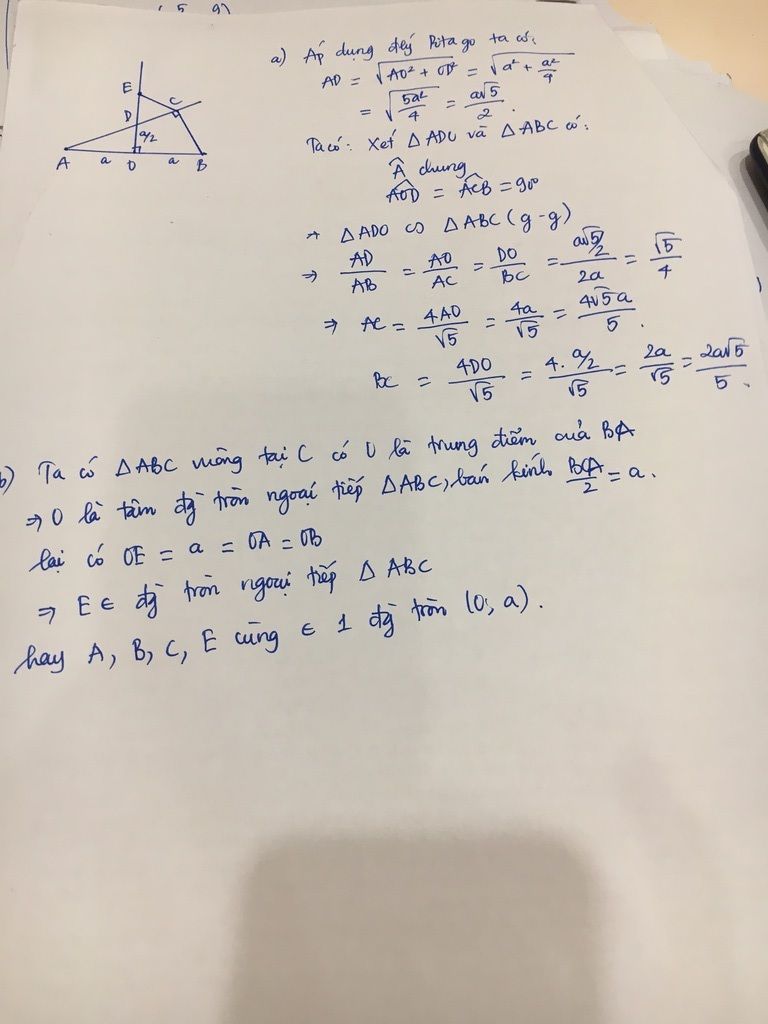 5 9)
E
D
C
a/2
A a O a B
a) Áp dụng đlý Pitago ta có:
AD = √(AO² + OD²) = √(a² + a²/4)
= √(5a²/4) = a√5/2.
Ta có: Xét △ADO và △ABC có:
Â chung
AOD = ACB = 90°
→ △ADO ∽ △ABC (g-g)
⇒ AD/AB = AO/AC = DO/BC = (a√5/2)/2a = √5/4
⇒ AC = 4AO/√5 = 4a/√5 = 4√5a/5.
BC = 4DO/√5 = 4.a/2/√5 = 2a/√5 = 2a√5/5.
b) Ta có △ABC vuông tại C có O là trung điểm của BA
⇒ O là tâm đg̀ tròn ngoại tiếp △ABC, bán kính BA/2 = a.
lại có OE = a = OA = OB
⇒ E ∈ đg̀ tròn ngoại tiếp △ABC
hay A, B, C, E cùng ∈ 1 đg̀ tròn (O; a).